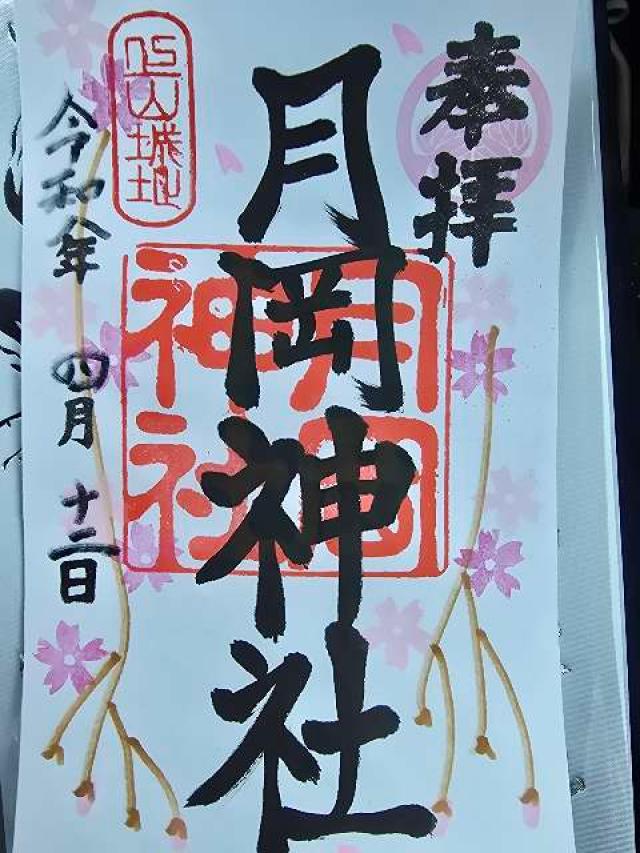 奉拝
月岡神社
月岡
神社
上山城址
令和八年 四月 十二日